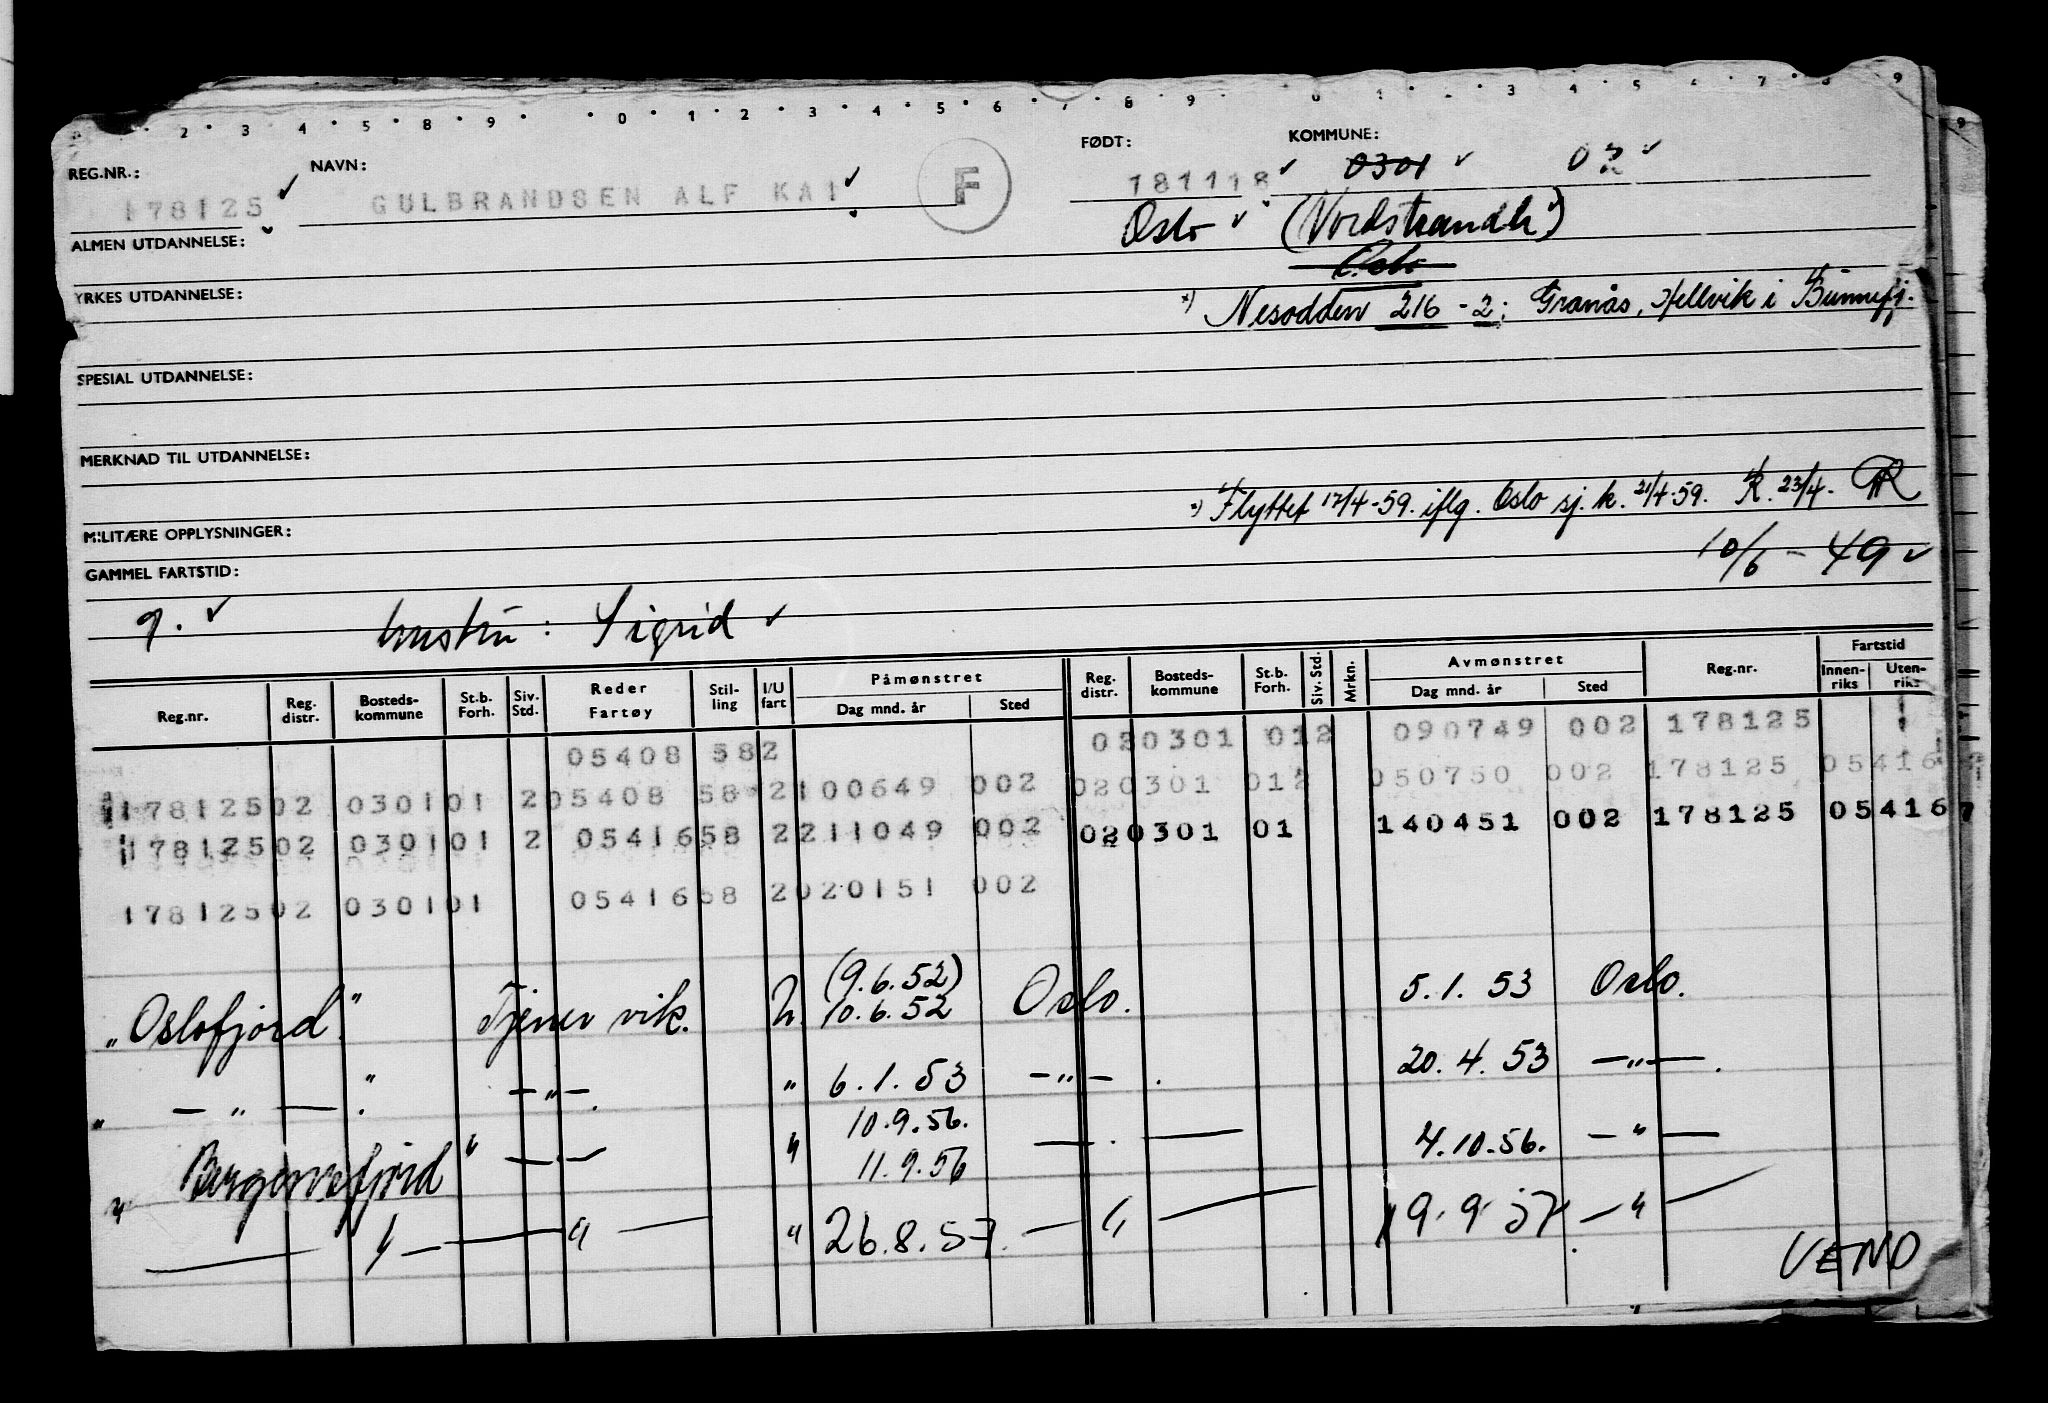 2 3 4 5 8 9 0 1 2 3 4 5 6 7 8 9 0 1 3 4 5 7 8 9
REG.NR.: NAVN: FØDT: KOMMUNE:
178125 GULBRANDSEN ALF KAI F 181118 0301 02
ALMEN UTDANNELSE: Oslo (Nordstrandh)
Oslo
YRKES UTDANNELSE: *) Nesodden 216-2; Granås, Hellvik i Bunnefj.
SPESIAL UTDANNELSE:
MERKNAD TIL UTDANNELSE:
*) Flyttet 17/4-59. iflg. Oslo sj. k. 21/4-59. K. 23/4.
MILITÆRE OPPLYSNINGER: 10/6-49
GAMMEL FARTSTID:
g. hustru: Sigrid
Reg.nr. Reg. distr. Bosteds-kommune St.b. Forh. Siv. Std. Reder Fartøy Stil-ling I/U fart Påmønstret Dag mnd. år Sted Reg. distr. Bosteds-kommune St.b. Forh. Siv. Std. Mrkn. Avmønstret Dag mnd. år Sted Reg.nr. Fartstid Innen-riks Uten-riks
05408 582 020301 012 090749 002 178125
17812502 030101 205408 58 2100649 002 020301 012 050750 002 178125 05416
17812502 030101 2 0541658 2211049 002 020301 01 140451 002 178125 05416 7
17812502 030101 0541658 2020151 002
(9.6.52)
"Oslofjord" Tjener vik. U. 10.6.52 Oslo. 5.1.53 Oslo.
" — " — " — " — " 6.1.53 — " — 20.4.53 — " —
10.9.56.
"Bergensfjord" — " 11.9.56 — 4.10.56. — " —
— " — " — " 26.8.57. — " — 19.9.57 — " —
VEND